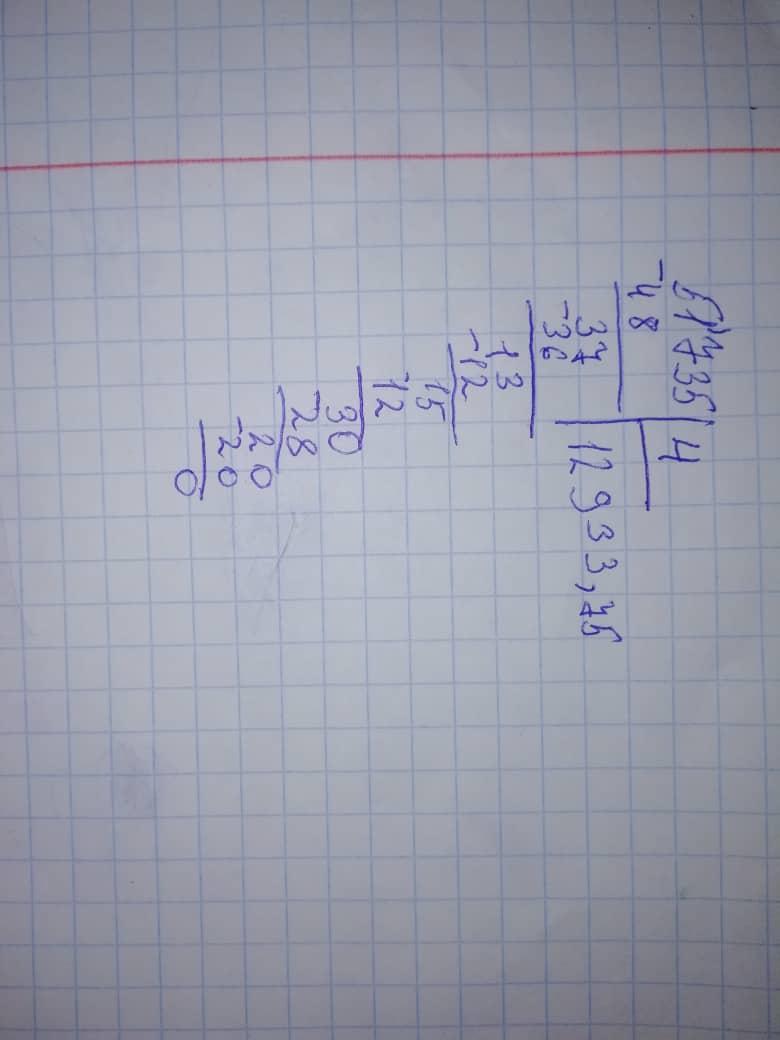 51735 4
-48 12933,75
37
-36
13
-12
15
12
30
28
20
-20
0